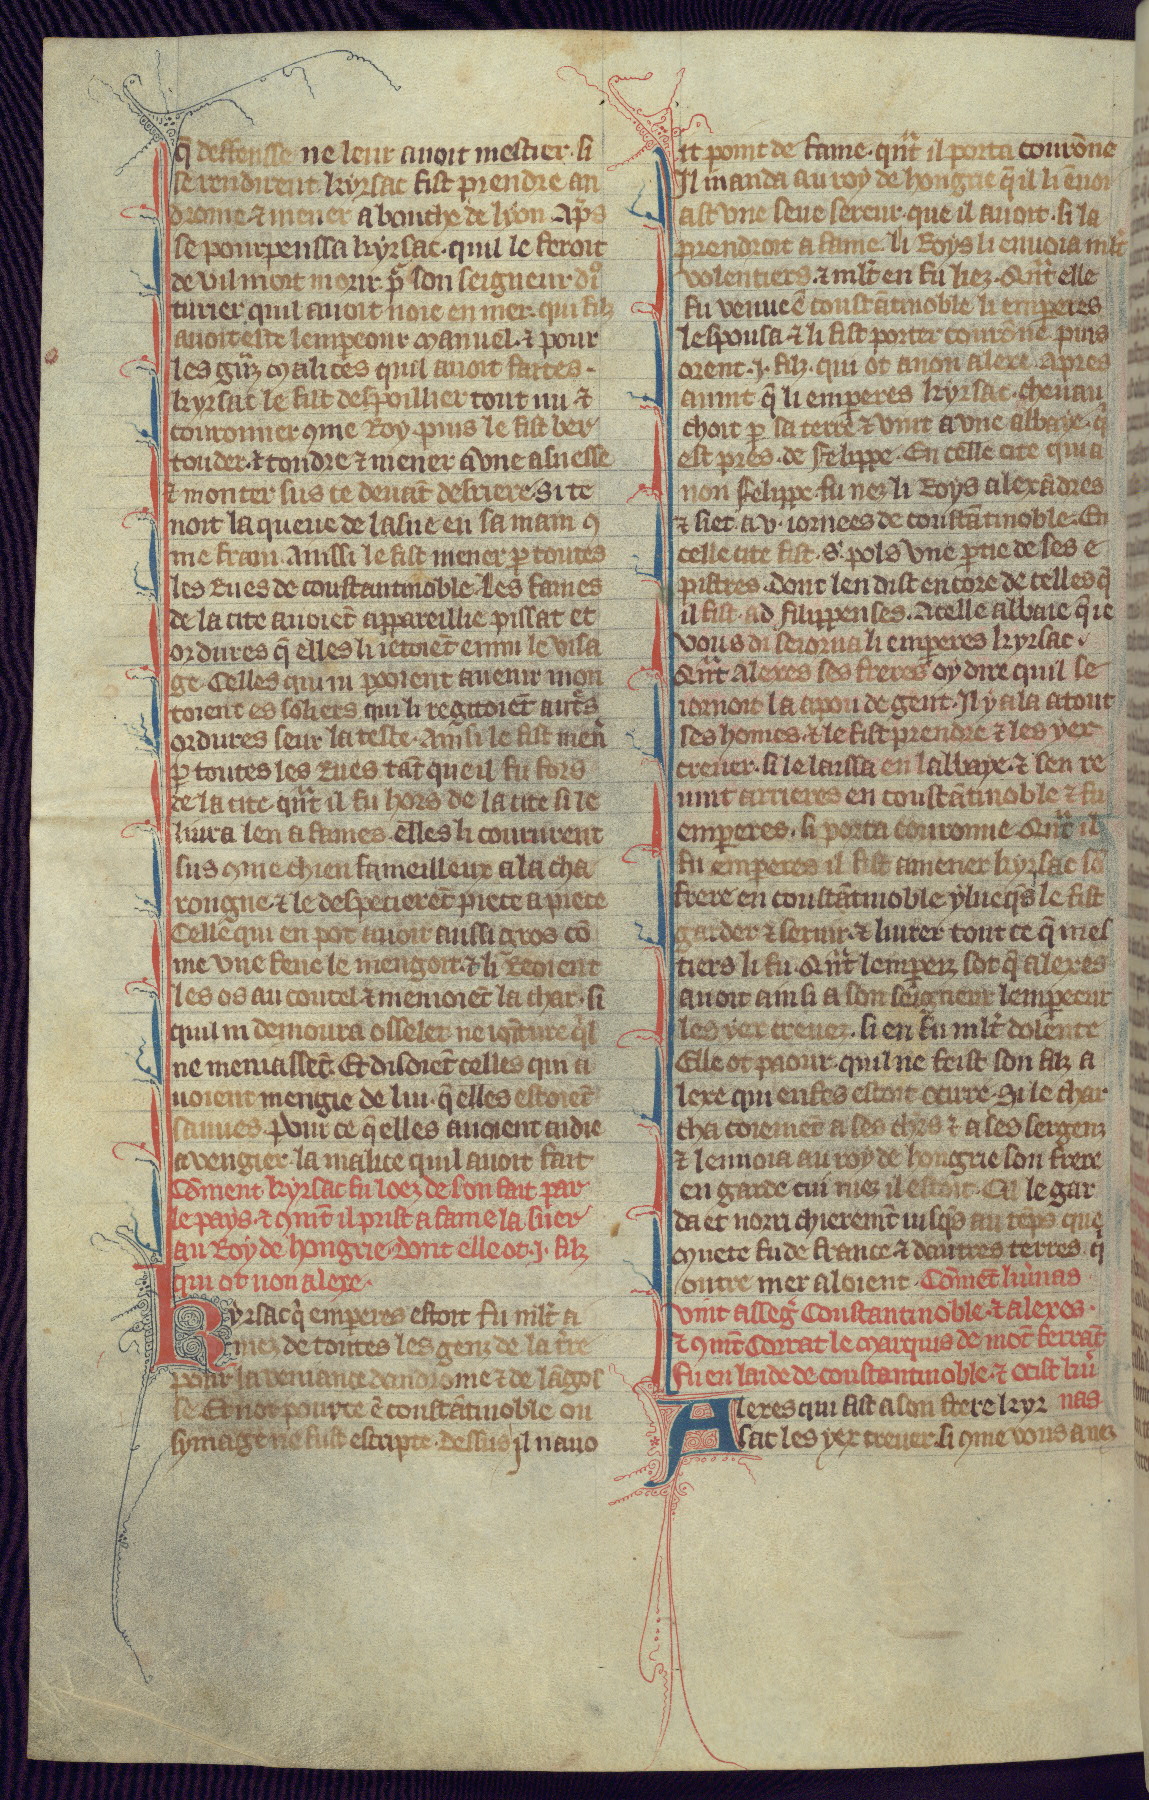 q̄ deffensse ne leur auoit mestier. si
se rendirent. kyrsac fist prendre an
drome ⁊ mener a bouche de lyon. Ap̃s
se pourpenssa kyrsac. quil le feroit
de vil mort morir. p̃ son seigneur
turier quil auoit noie en mer. qui filz
auoit este lempeour manuel. ⁊ pour
les gñz malices quil auoit faites.
kyrsac le fist despoillier tout nu ⁊
couronner ꝯme Roy. puis le fist ber
touder. ⁊ tondre ⁊ mener a vne asnesse
⁊ monter sus ce deuãt derriere. Si te
noit la queue de lasne en sa main ꝯ
me frain. Ainssi le fist mener ꝑ toutes
les Rues de constantinoble. Les fames
de la cite auoiẽt appareillie pissat et
ordures q̃ elles li ietoiẽt enmi le visa
ge. Celles qui ni pooient auenir mon
toient es soliers qui li regitoiẽt autr̃s
ordures seur la teste. Ainsi le fist men̾
ꝑ toutes les Rues tãt que il fu fors
de la cite. qñt il fu hors de la cite si le
liura len a fames. elles li coururent
sus ꝯme chien fameilleux a la cha
rongne. ⁊ le despecierẽt piece a piece
Celle qui en pot auoir aussi gros cõ
me vne feue le mengoit. ⁊ li Reoient
les os au coutel ⁊ menioiẽt la char. si
quil ni demoura osselet ne iointure q̃l
ne meniassẽt. Et disoiẽt celles qui a
uoient mengie de lui. q̃ elles estoiẽt
sauues. Pour ce q̃ elles auoient aidie
a vengier. la malice quil auoit fait
Cõment kyrsac fu loez de son fait par
le pays. ⁊ ꝯmẽt il prist a fame la suer
au Roy de hongrie. dont elle ot .j. filz
qui ot non alexe.
Kyrsac q̃ emperes estoit fu ml̃t a
mez de toutes les genz de la t̃re
pour la veniance dandrome ⁊ de lãgoi
se Et not pourte ẽ constãtinoble ou
symage ne fust escripte. dessus Jl nauo
it point de fame. qñt il porta courõne
Jl manda au roy de hongrie q̃ il li enuoi
ast vne seue sereur. que il auoit. si la
prendroit a fame. li Roys li enuoia ml̃t
volentiers. ⁊ ml̃t en fu liez. Qñt elle
fu venue ẽ constãtinoble li emperes
lespousa ⁊ li fist porter courõne. puis
orent .j. filz. qui ot a non alexe. Apres
auint q̃ li emperes kyrsac. cheuau
choit ꝑ sa terre ⁊ vint a vne abbaye. q̃
est pres. de Felippe. En celle cite qui a
non Felippe. fu nez li Roys alexãdres
⁊ siet. a .v. iornees de constãtinoble. En
celle cite fist. S. pols vne ꝑtie de ses e
pistres. dont len dist encore de celles q̃
il fist. ad filippenses. A celle abbaie q̃ ie
vous di seiorna li emperes kyrsac.
Qñt Alexes ses freres oy dire quil se
iornoit la a pou de gent. Jl y ala a tout
ses homes. ⁊ le fist prendre ⁊ les yex
creuer. si le laissa en labbaye. ⁊ sen re
uint arrieres en constãtinoble ⁊ fu
emperes. si porta couronne. Qñt il
fu emperes il fist amener kyrsac sõ
frere en constãtinoble yllueq̃s le fist
garder ⁊ seruir. ⁊ liurer tout ce q̃ mes
tiers li fu. Qñt lemperiz sot q̃ alexes
auoit ainsi a son seigneur lempereur
les yex creuez. si en fu ml̃t dolente
Elle ot paour. quil ne feist son filz a
lexe qui enfes estoit ocirre. Si le char
cha coiemẽt a ses ch̃rs ⁊ a ses sergenz
⁊ lenuoia au roy de hongrie son frere
en garde cui niez il estoit. Cil le gar
da et norri chieremẽt iusq̃s au tẽps que
muete fu de france ⁊ dautres terres q̃
outre mer aloient. Cõmẽt liurnas
vint asseg̃ Constantinoble. ⁊ alexes.
⁊ ꝯmẽt Corrat le marquis de mõt ferrãt
fu en laide de constantinoble. ⁊ ocist liur̃
nas
Alexes qui fist a son frere kyr
sac les yex creuer. si ꝯme vous auez